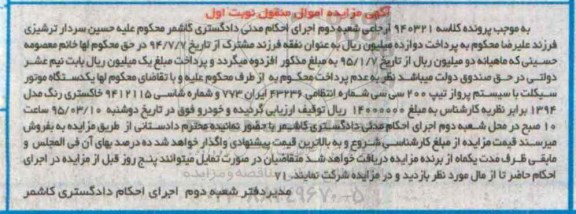 آگهی مزایده اموال منقول نوبت اول
به موجب پرونده کلاسه ۹۴۰۳۲۱ ارجاعی شعبه دوم اجرای احکام مدنی دادگستری کاشمر محکوم علیه حسین سردار ترشیزی
فرزند علیرضا محکوم به پرداخت دوازده میلیون ریال به عنوان نفقه فرزند مشترک از تاریخ ۹۴/۷/۷ در حق محکوم لها خانم معصومه
حسینی که ماهیانه دو میلیون ریال از تاریخ ۹۵/۱/۷ به مبلغ مذکور افزوده میگردد و پرداخت مبلغ یک میلیون ریال بابت نیم عشر
دولتی در حق صندوق دولت میباشد نظر به عدم پرداخت محکوم به از طرف محکوم علیه و با تقاضای محکوم لها یکدستگاه موتور
سیکلت با سیستم پرواز تیپ ۲۰۰ سی سی شماره انتظامی ۴۳۲۳۶ ایران ۷۷۲ و شماره شاسی ۹۴۱۲۱۱۵ خاکستری رنگ مدل
۱۳۹۴ برابر نظریه کارشناس به مبلغ ۱۴۰۰۰۰۰۰ ریال توقیف ارزیابی گردیده و خودرو فوق در تاریخ دوشنبه ۹۵/۰۳/۱۰ ساعت
۱۰ صبح در محل شعبه دوم اجرای احکام مدنی دادگستری کاشمر با حضور نماینده محترم دادستانی از طریق مزایده به بفروش
میرسد قیمت مزایده از مبلغ کارشناسی شروع و به بالاترین قیمت پیشنهادی واگذار خواهد شد ده درصد بهای آن فی المجلس و
مابقی ظرف مدت یکماه از برنده مزایده دریافت خواهد شد متقاضیان در صورت تمایل میتوانند پنج روز قبل از مزایده در اجرای
احکام حاضر تا از مال مورد نظر بازدید و در مزایده شرکت نمایند. ۷۱
مدیر دفتر شعبه دوم اجرای احکام دادگستری کاشمر